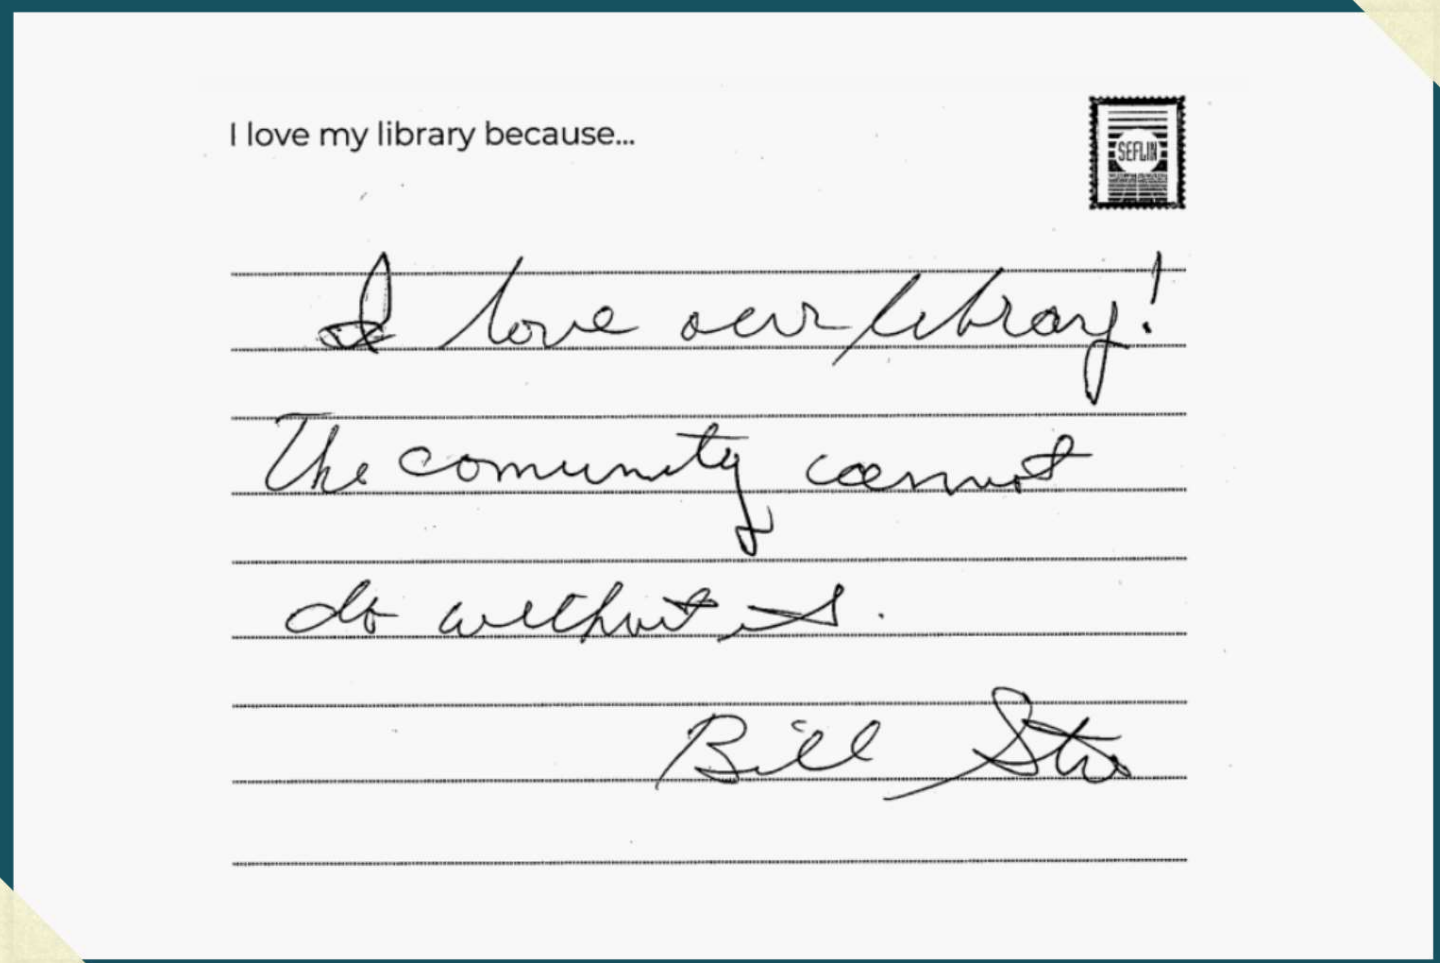 I love my library because...
SEFLIN
I love our library!
The comunity cannot
do without it.
Bill